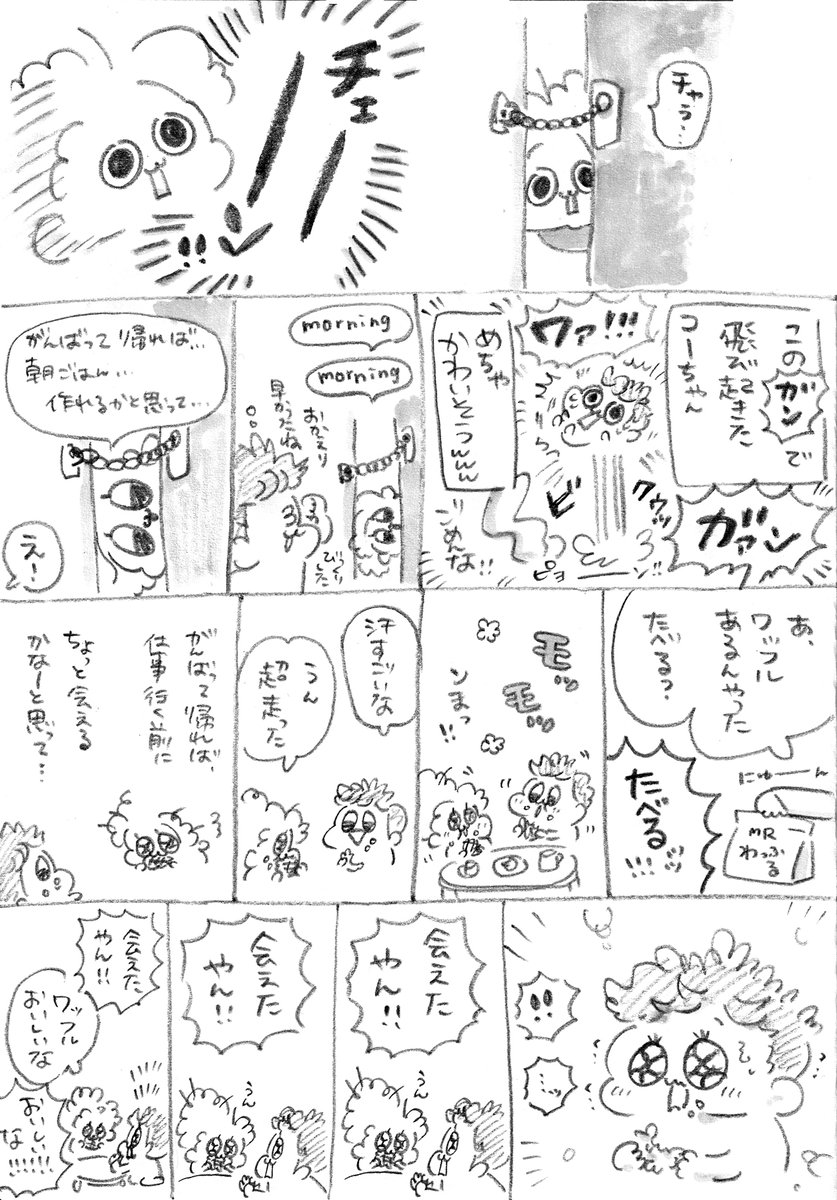 チャラ…
チェーン!!
このガンで
飛び起きた
コーちゃん
ガァン
ワァ!!!
ビ
クウッ
ピョーーン!!
めちゃ
かわいそうwww
ごめんな!!
morning
morning
おかえり
早かったね
びっくりした
がんばって帰れば…
朝ごはん…
作れるかと思って…
え!
あ、
ワッフル
あるんやった
たべるっ?
にゅーーん
MR
わっふる
たべる
!!!
モッ
モッ
ンまっ!!
汗すごいな
うん
超走った
がんばって帰れば、
仕事行く前に
ちょっと会える
かなーと思って…
!!
…ッ
会えた
やん!!
うん
会えた
やん!!
うん
会えた
やん!!
ワッフル
おいしいな
おいしい
な!!!!!